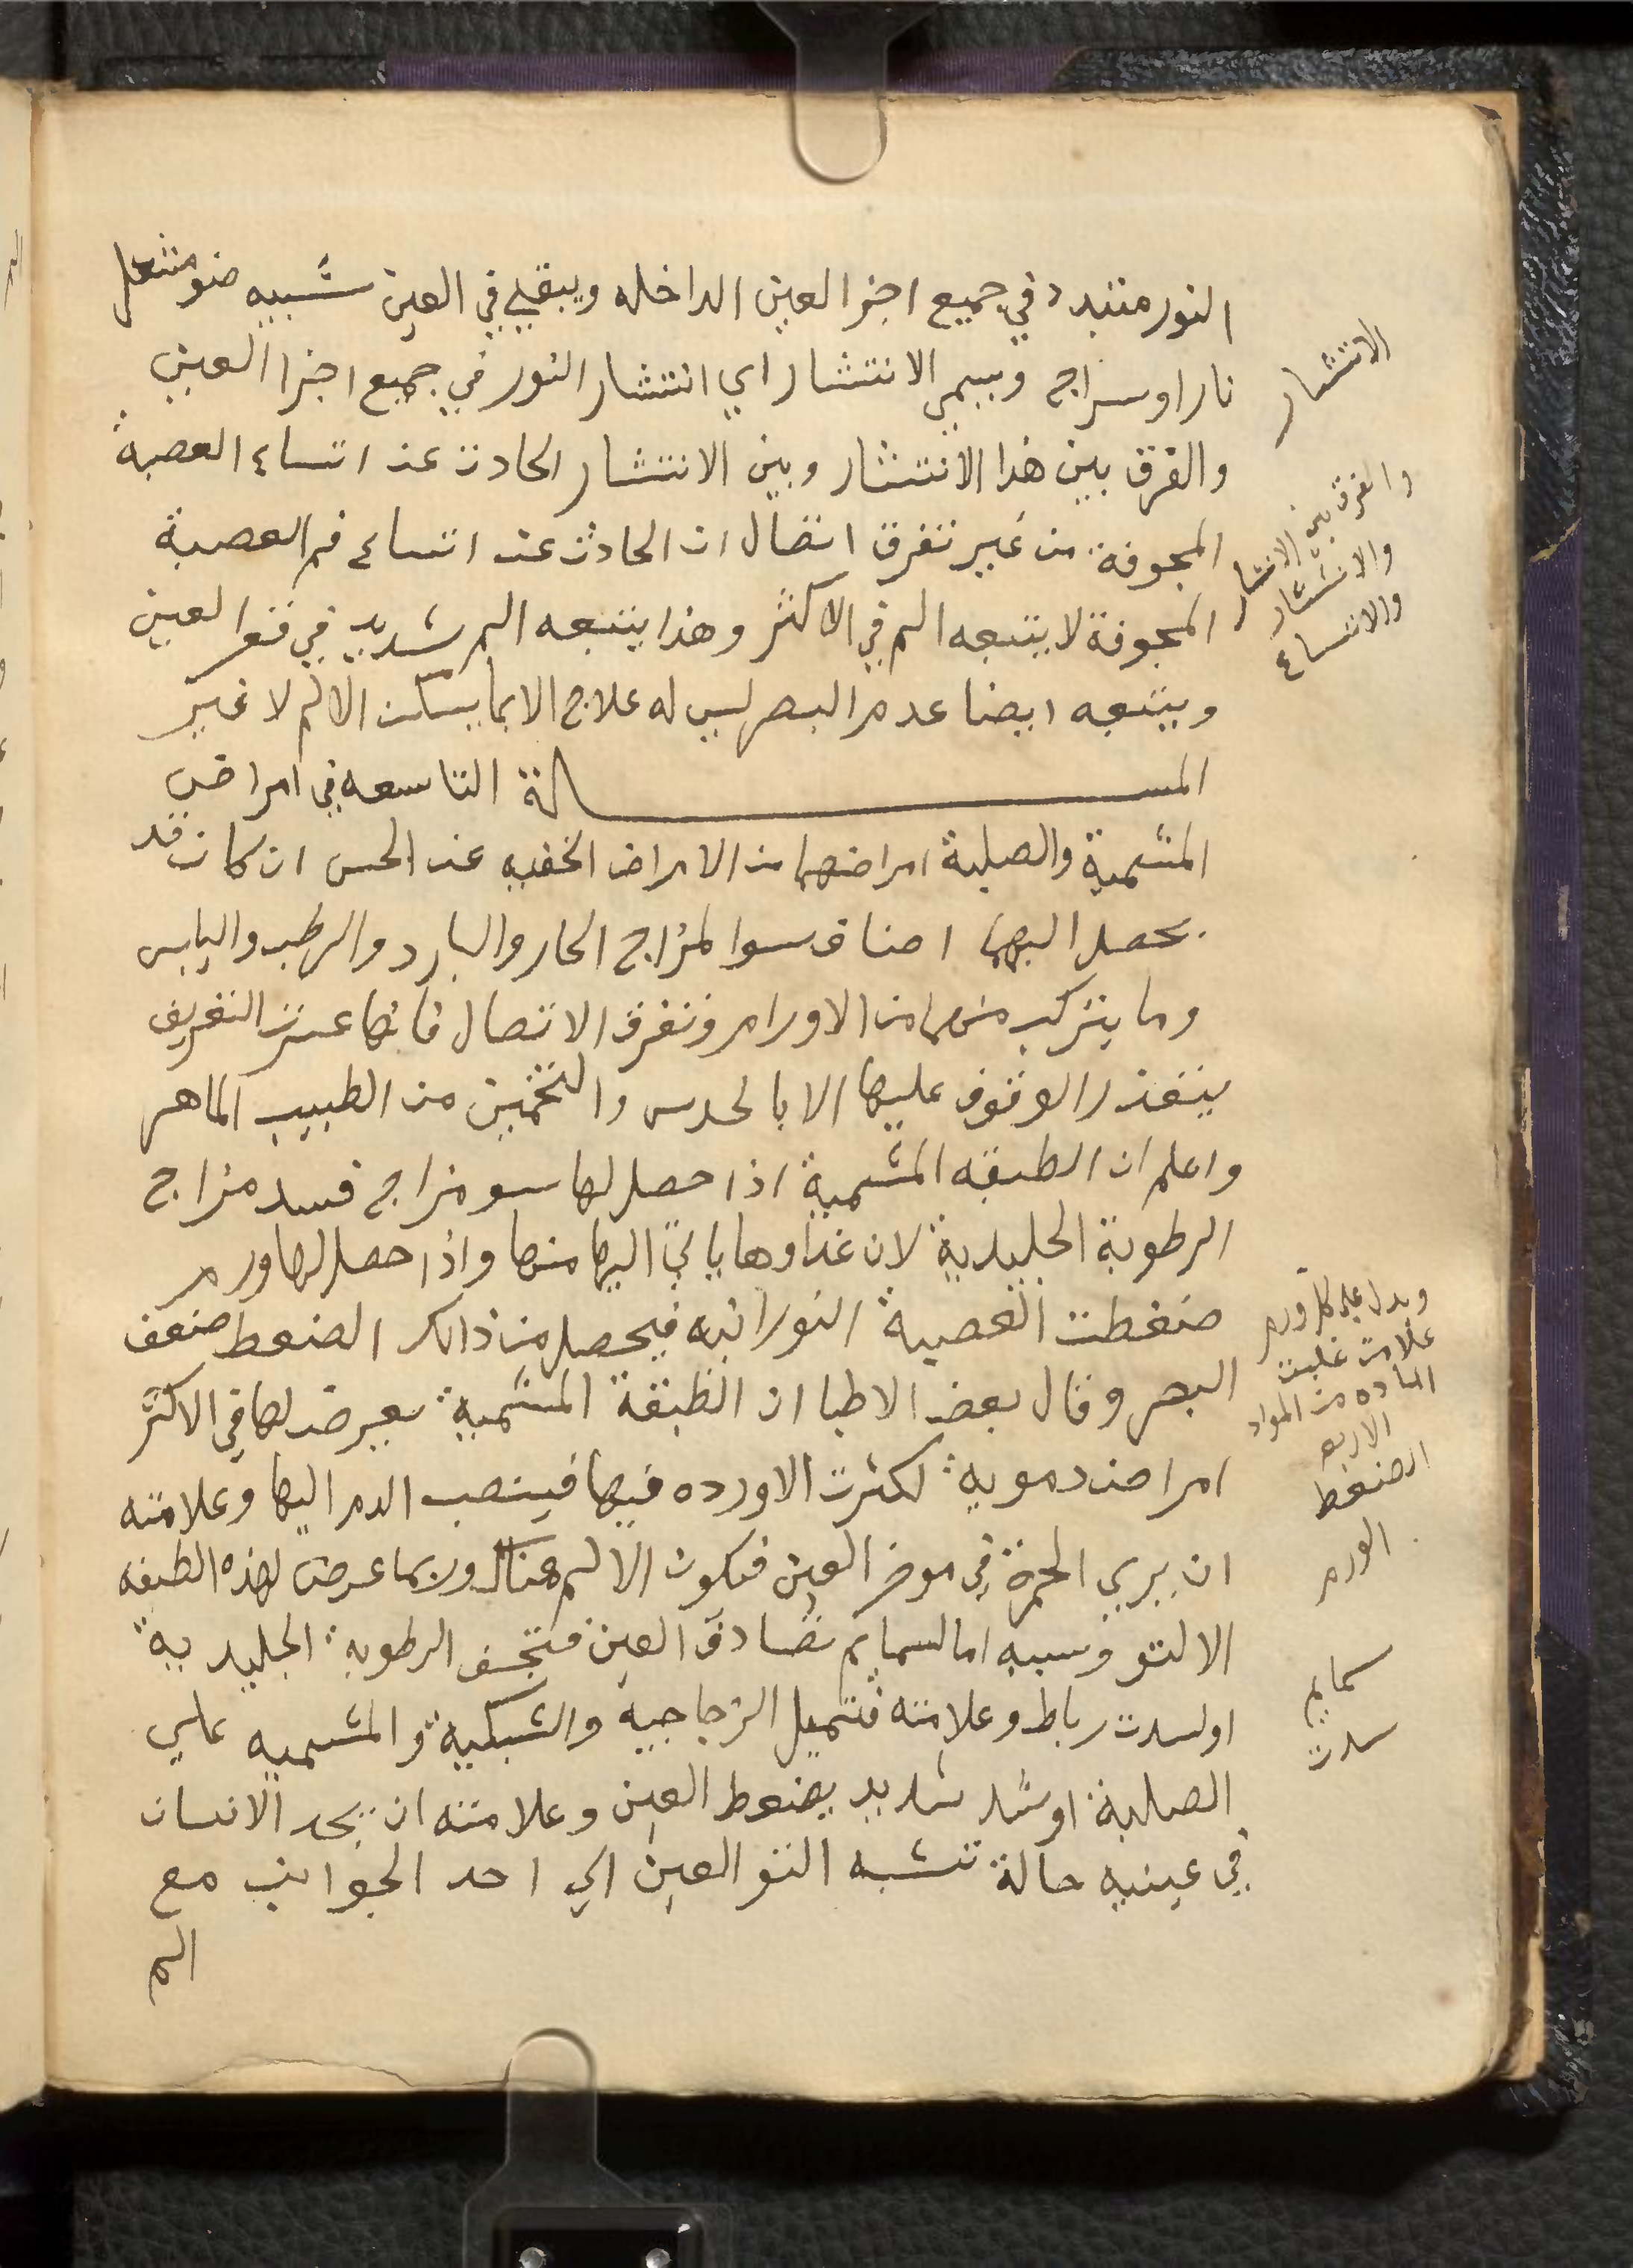 النور متبدد في جميع اجزا العين الداخله ويبقي في العين شبيه ضو مشعل
نار او سراج ويسمي الانتشار اي انتشار النور في جميع اجزا العين
والفرق بين هذا الانتشار وبين الانتشار الحادث عند اتساع العصبة
المجوفة من غير تفرق اتصال ان الحادث عند اتساع فم العصبة
المجوفة لا يتبعه الم في الاكثر وهذا يتبعه الم شديد في قعر العين
ويتبعه ايضا عدم البصر ليس له علاج الا بما يسكن الالم لا غير
المسالة التاسعه في امراض
المشمية والصلبة امراضهما من الامراض الخفيه عند الحس ان كان قد
يحصل اليهما اصناف سوا لمزاج الحار والبارد والرطب واليابس
وما يتركب منهما من الاورام وتفرق الاتصال فانها عسرت التعريف
يتعذر الوقوف عليها الا بالحدس والتخمين من الطبيب الماهر
واعلم ان الطبقه المشمية اذا حصل لها سو مزاج فسد مزاج
الرطوبة الجليدية لان غداوها ياتي اليها منها واذا حصل لها ورم
ضغطت العصبة النورانيه فيحصل من ذالك الضغط ضعف
البصر وقال بعض الاطبا ان الطبقة المشمية يعرض لها في الاكثر
امراض دمويه لكثرت الاورده فيها فينصب الدم اليها وعلامته
ان يري الحمرة في موخر العين فيكون الالم هناك وربما عرض لهذه الطبقه
الالتو وسببه اما لسمايم تصادف العين فتجفف الرطوبه الجليديه
او لسدت رباط وعلامته فتميل الزجاجيه والشبكية والمشميه علي
الصلبة او شد شديد يضغط العين وعلامته ان يجد الانسان
في عينيه حالة تشبه التو العين الي احد الجوانب مع
الم
الانتشار
والفرق بين الانتشار
والانتشار
والاتساع
ويدل علي كل ورم
علامت غلبت
الماده من المواد
الاربعه
الضغط
الورم
سمايم
سدت